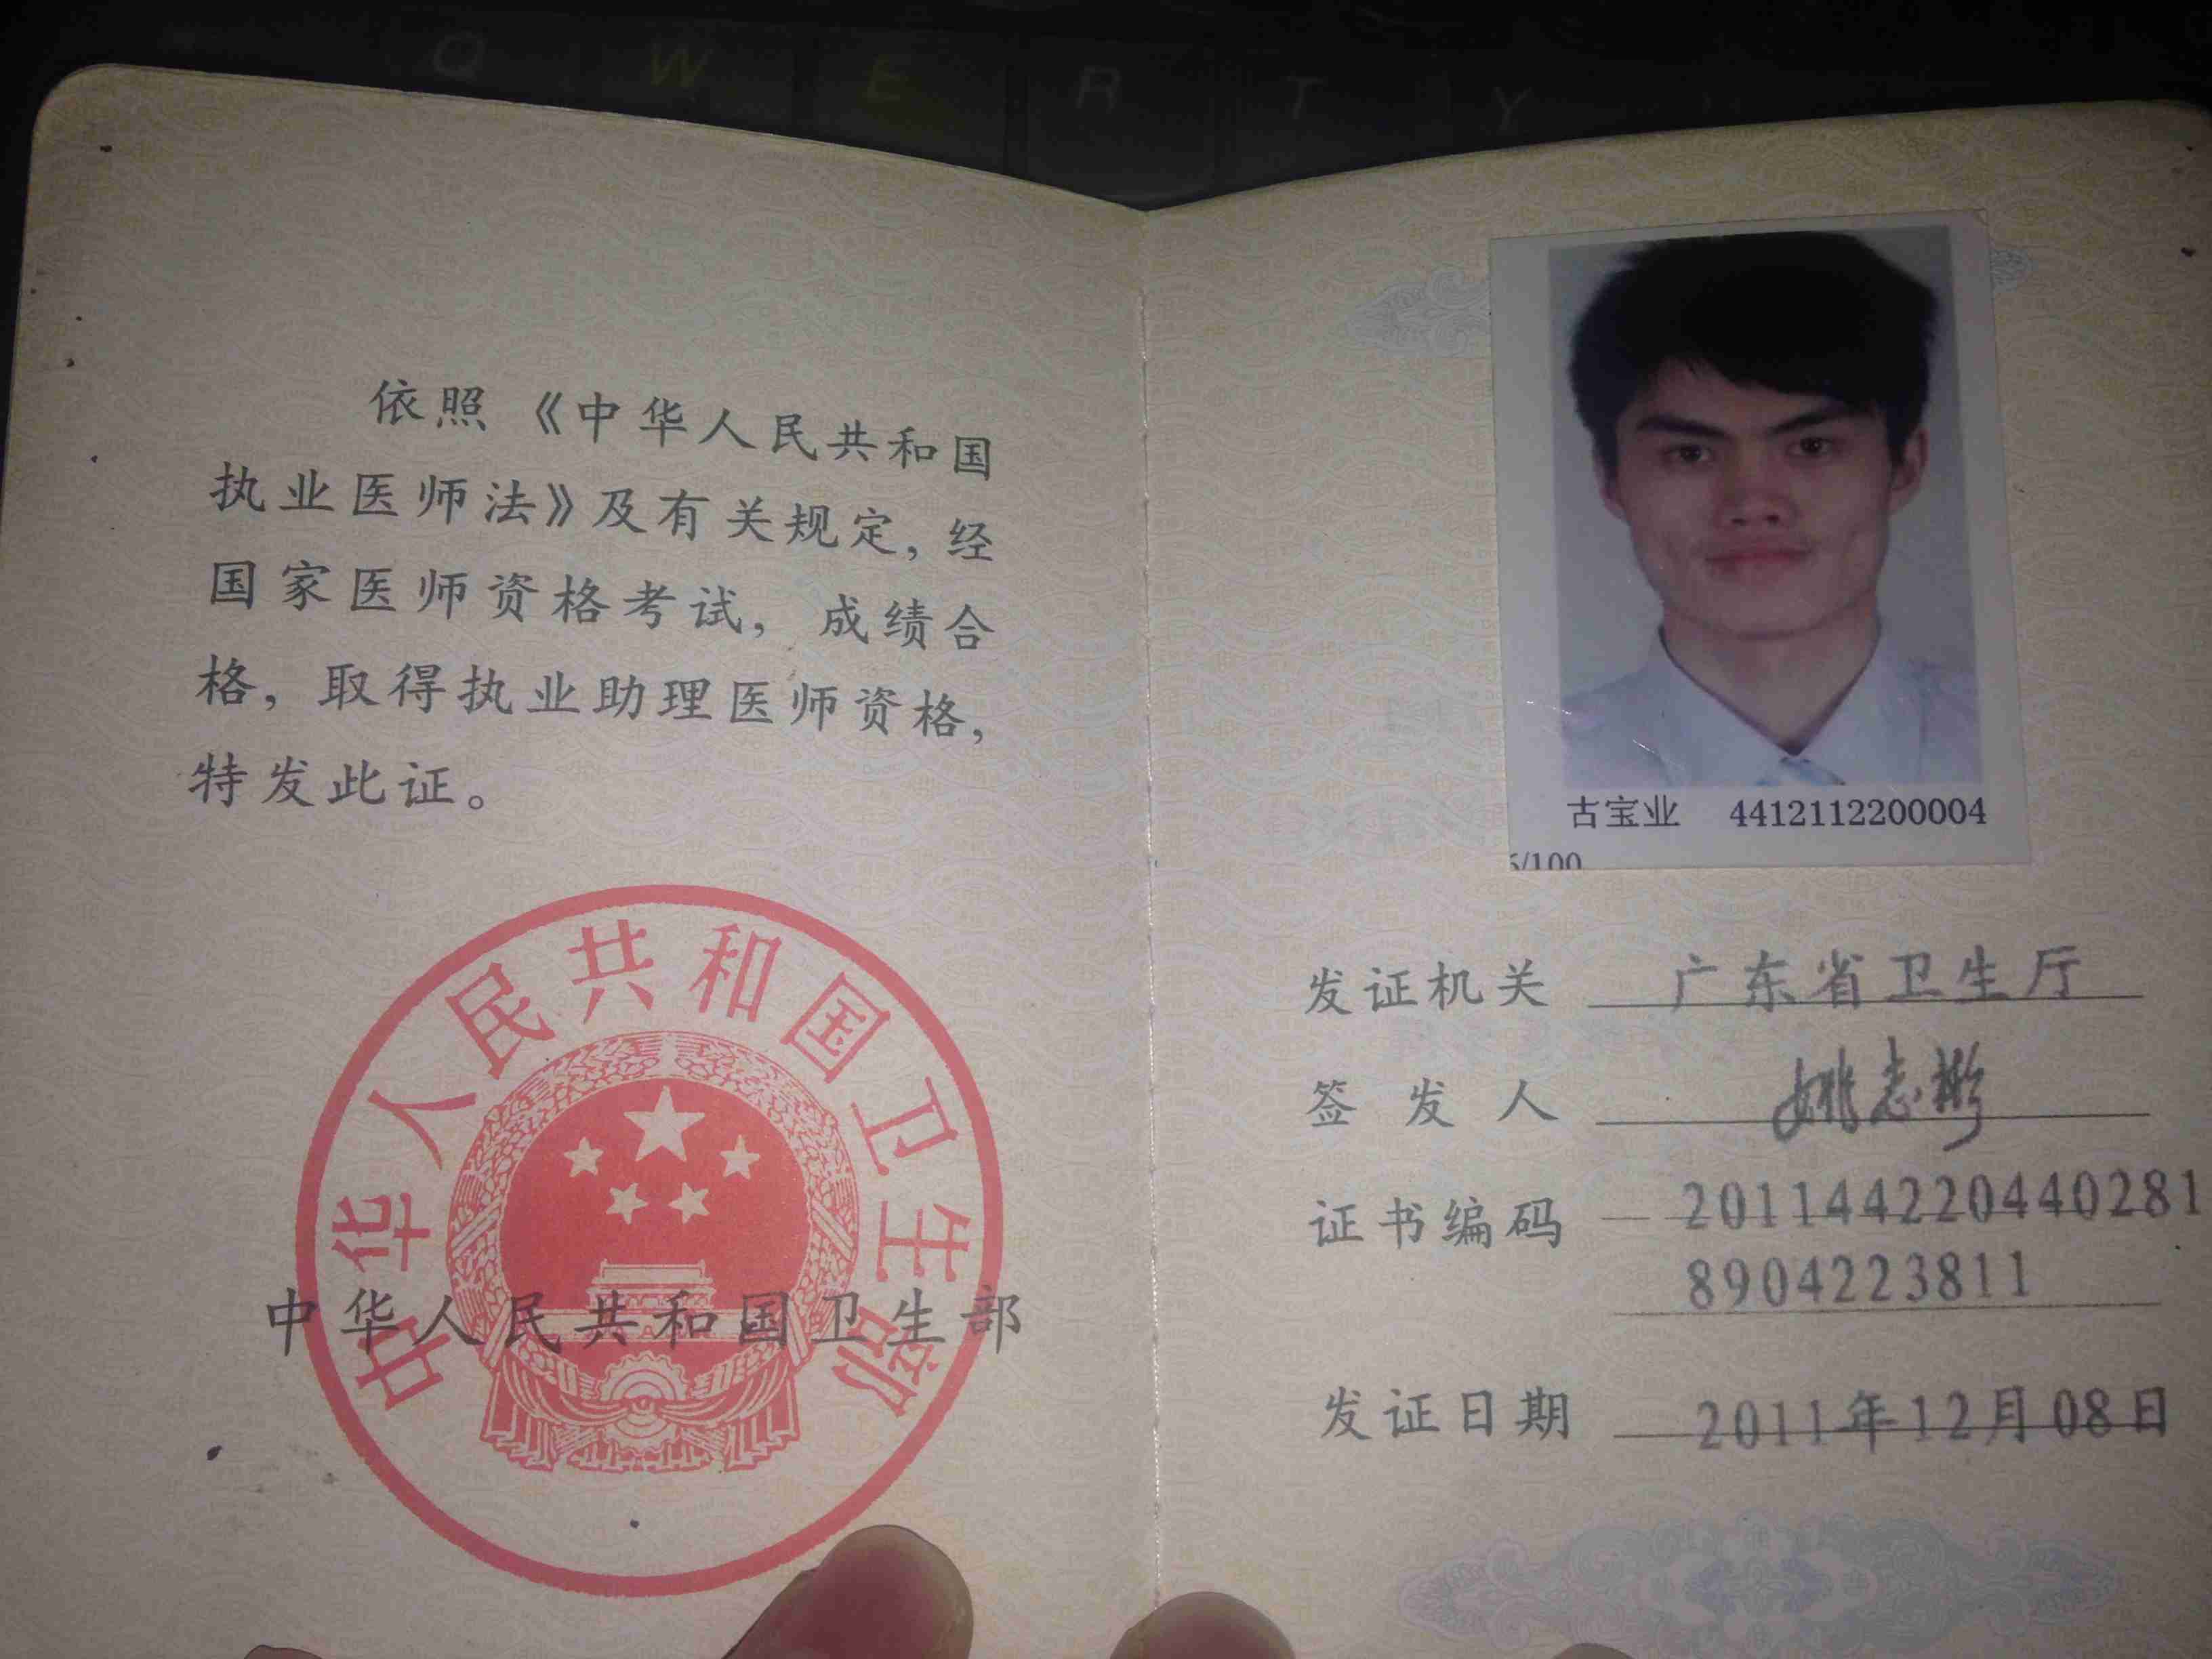 Q W E R T Y
依照《中华人民共和国
执业医师法》及有关规定,经
国家医师资格考试,成绩合
格,取得执业助理医师资格,
特发此证。
中华人民共和国卫生部
中华人民共和国卫生部
古宝业 4412112200004
5/100
发证机关 广东省卫生厅
签发人 姚志彬
证书编码 201144220440281
8904223811
发证日期 2011年12月08日